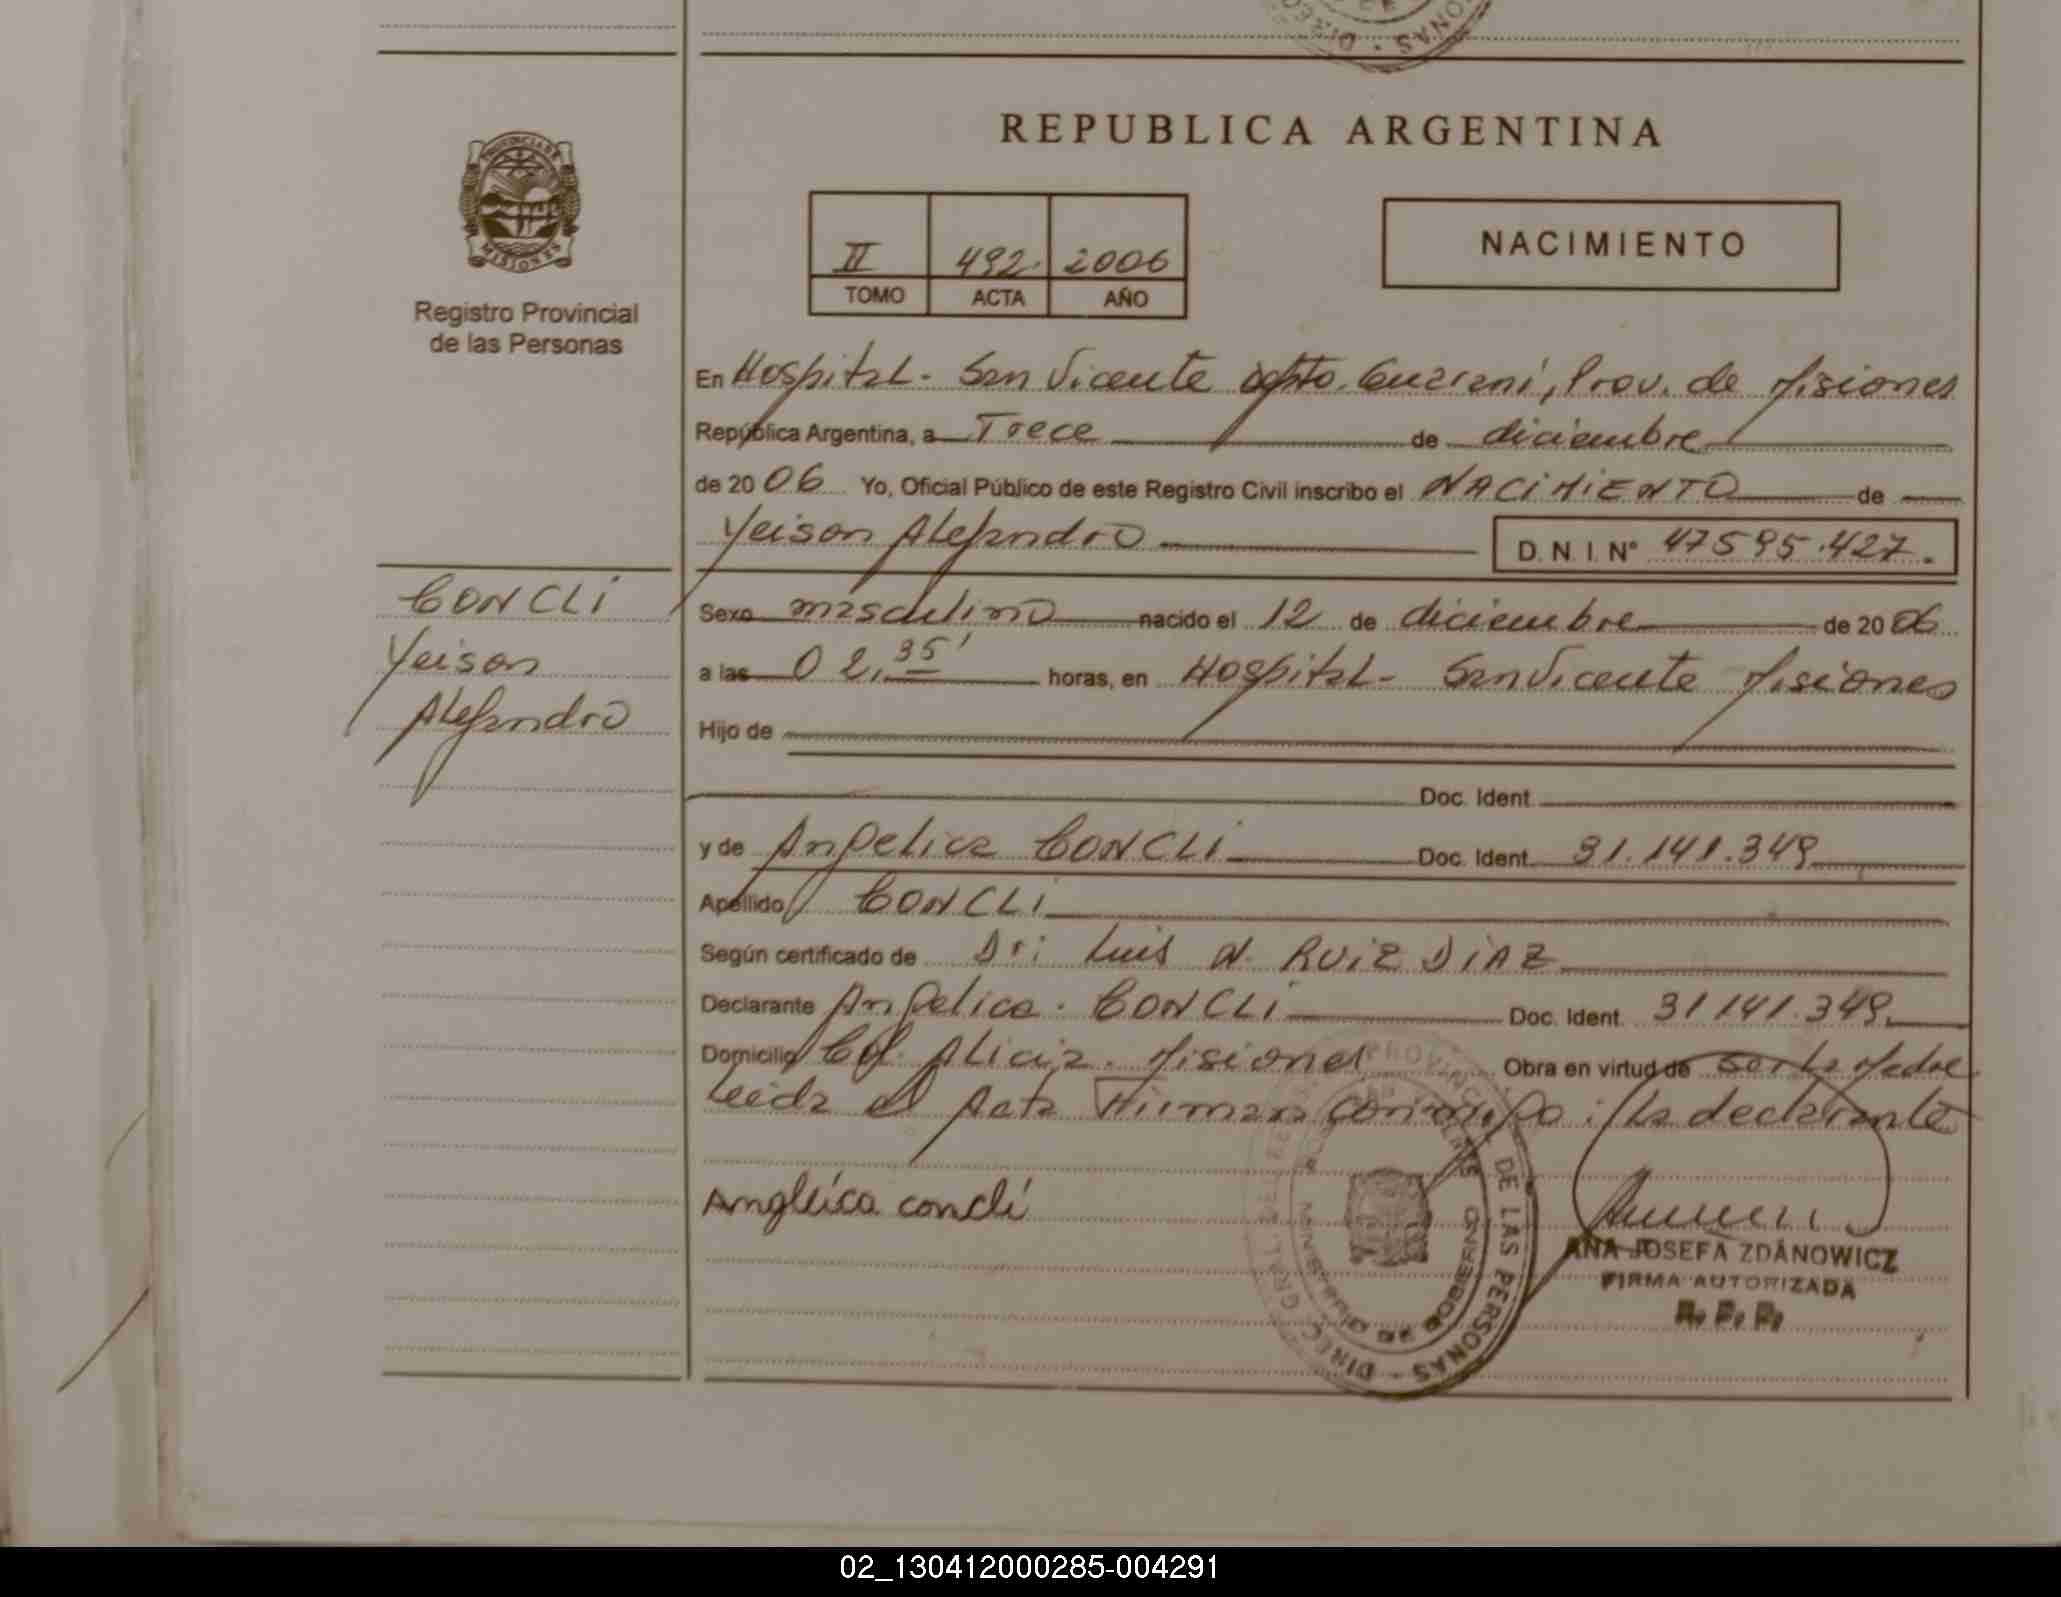 REPUBLICA ARGENTINA
PROVINCIA DE
MISIONES
Registro Provincial
de las Personas
II 492. 2006
TOMO ACTA AÑO
NACIMIENTO
En Hospital - San Vicente dpto. Guaraní, Prov. de Misiones
República Argentina, a Trece de diciembre
de 2006 Yo, Oficial Público de este Registro Civil inscribo el NACIMIENTO de
Yeison Alejandro D. N. I. N° 47595.427.
CONCLI
Yeison
Alejandro
Sexo masculino nacido el 12 de diciembre de 2006
a las 02,35' horas, en Hospital - San Vicente Misiones
Hijo de
Doc. Ident.
y de Angelica CONCLI Doc. Ident. 31.141.349
Apellido CONCLI
Según certificado de Dr: Luis N. RUIZ DIAZ
Declarante Angelica. CONCLI Doc. Ident. 31141.349.
Domicilio Col. Alicia. Misiones Obra en virtud de ser la Madre
Leida el Acta Firman conmigo: la declarante
Angleica concli
ANA JOSEFA ZDANOWICZ
FIRMA AUTORIZADA
R. P. P.
DE LAS PERSONAS - DIREC. GRAL.
02_130412000285-004291